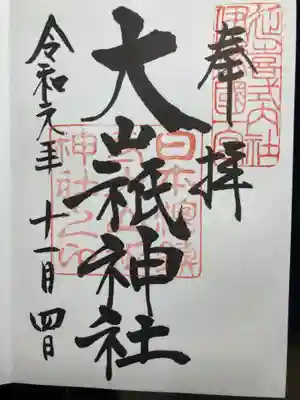 奉拝
延喜式内社
伊豫國一宮
大山祇神社
日本總鎮
守大山祇
神社之印
令和元年十一月四日